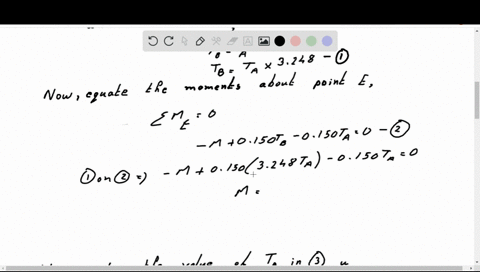 T_B = T_A × 3.248 - ①
Now, equate the moments about point E,
ΣM_E = 0
-M + 0.150T_B - 0.150T_A = 0 - ②
① on ② => - M + 0.150(3.248T_A) - 0.150T_A = 0
M =
the value of T_B in ③